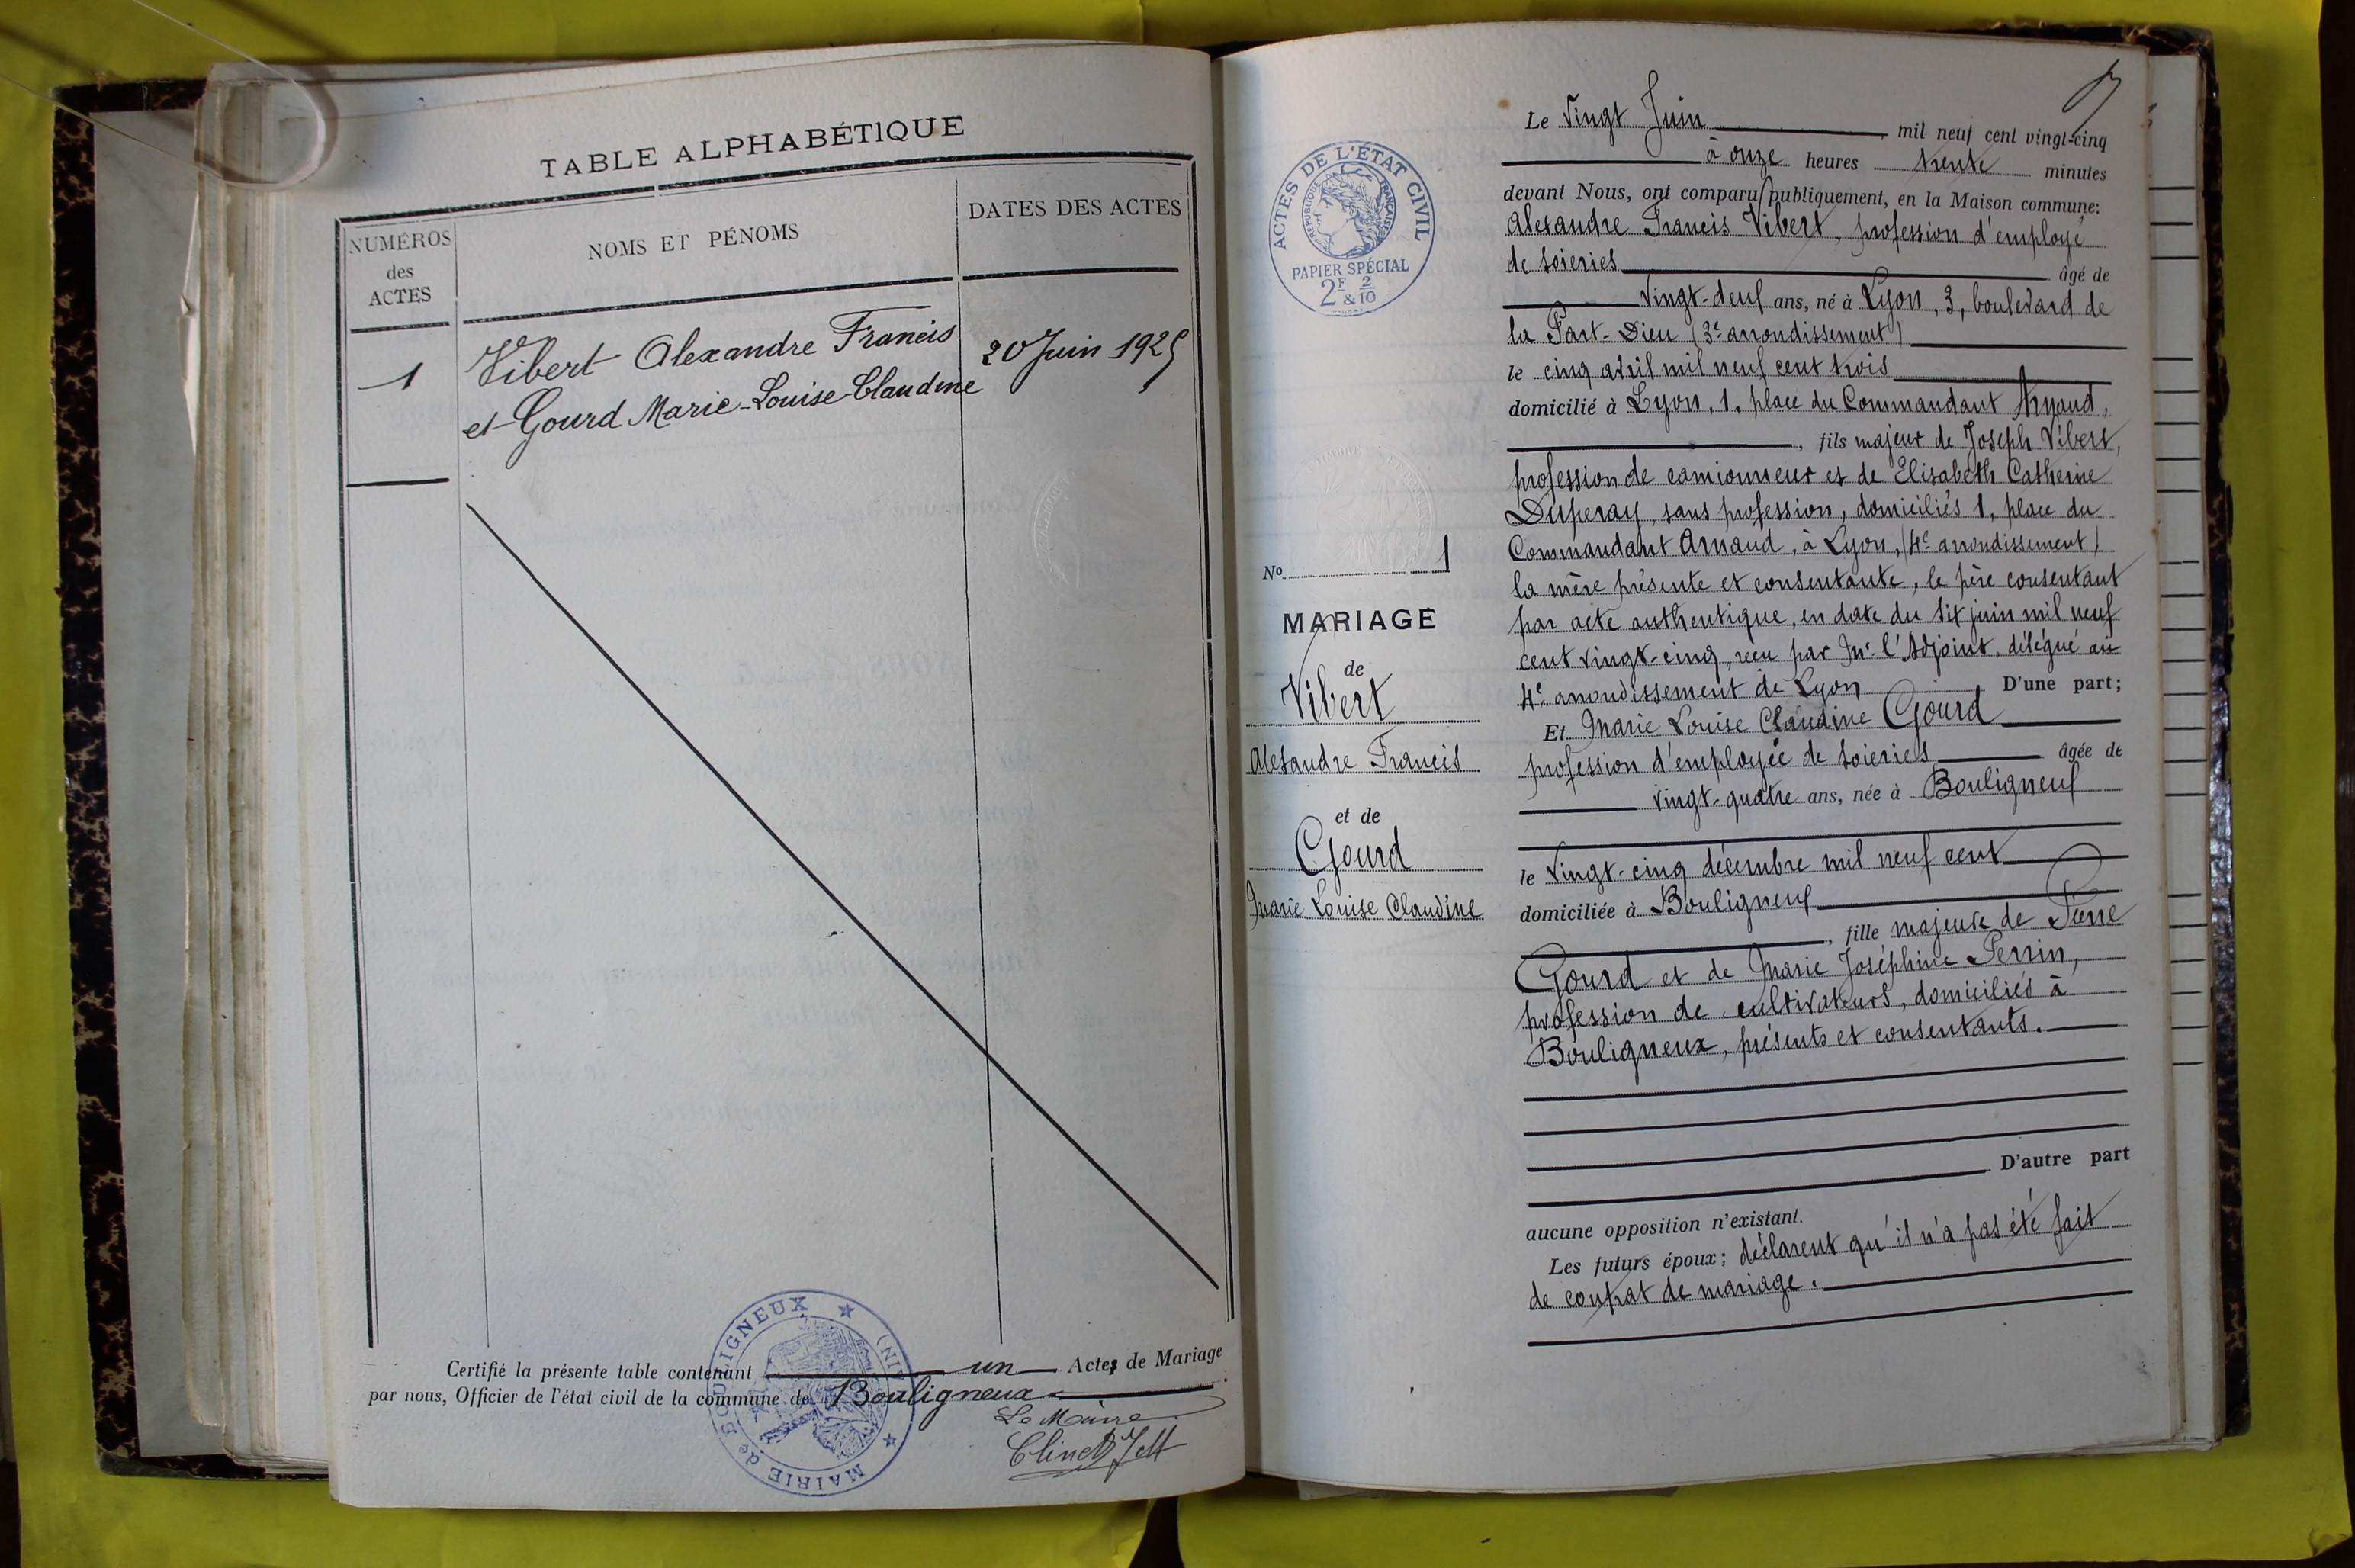 TABLE ALPHABÉTIQUE
NUMÉROS
des
ACTES
NOMS ET PÉNOMS
DATES DES ACTES
1
Vibert Alexandre Francis
20 Juin 1925
et Gourd Marie-Louise-Claudine
Certifié la présente table contenant un Actes de Mariage
par nous, Officier de l'état civil de la commune de Bouligneux
Le Maire
MAIRIE de BOULIGNEUX (AIN)
ACTES DE L'ÉTAT CIVIL
RÉPUBLIQUE FRANÇAISE
PAPIER SPÉCIAL
2F & 2/10
No 1
MARIAGE
de
Vibert
Alexandre Francis
et de
Gourd
Marie Louise Claudine
Le Vingt Juin mil neuf cent vingt-cinq
à onze heures trente minutes
devant Nous, ont comparu publiquement, en la Maison commune:
Alexandre Francis Vibert, profession d'employé
de soieries âgé de
vingt-deux ans, né à Lyon, 3, boulevard de
la Part-Dieu (3e arrondissement)
le cinq avril mil neuf cent trois
domicilié à Lyon, 1, place du Commandant Arnaud,
, fils majeur de Joseph Vibert,
profession de camionneur et de Elisabeth Catherine
Duperay, sans profession, domiciliés 1, place du
Commandant Arnaud, à Lyon, (4e arrondissement)
la mère présente et consentante, le père consentant
par acte authentique, en date du six juin mil neuf
cent vingt-cinq, reçu par Mr l'Adjoint, délégué au
4e arrondissement de Lyon D'une part;
Et Marie Louise Claudine Gourd
profession d'employée de soieries âgée de
vingt-quatre ans, née à Bouligneux
le vingt-cinq décembre mil neuf cent
domiciliée à Bouligneux
, fille majeure de Pierre
Gourd et de Marie Joséphine Perrin,
profession de cultivateurs, domiciliés à
Bouligneux, présents et consentants.
D'autre part
aucune opposition n'existant.
Les futurs époux; déclarent qu'il n'a pas été fait
de contrat de mariage.